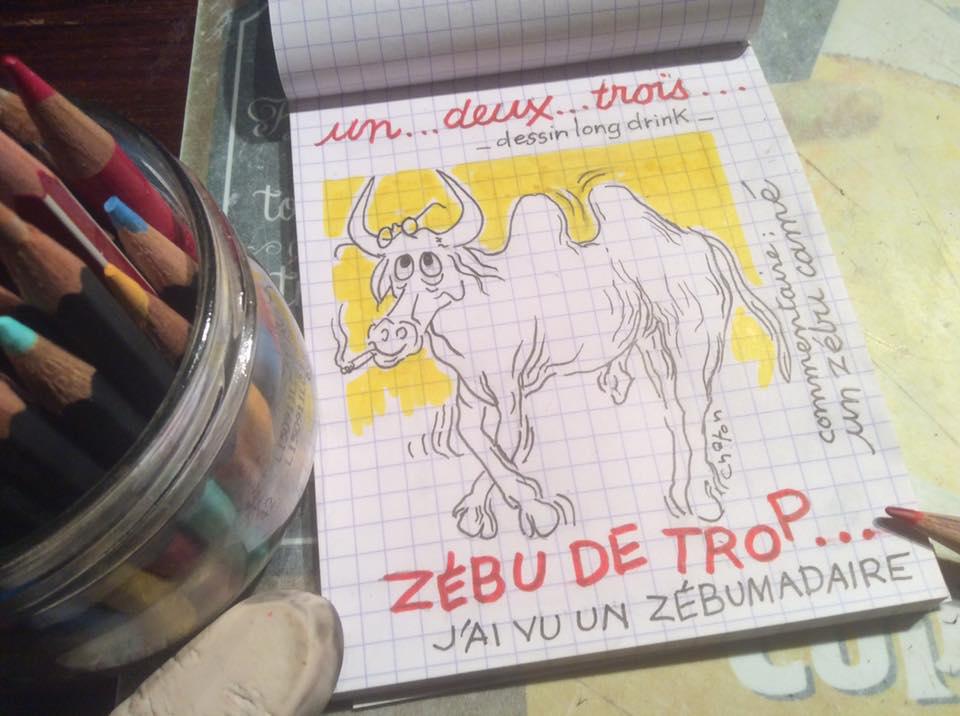 un...deux...trois...
– dessin long drink –
commentaire :
un zébu carré
Chaton
ZÉBU DE TROP...
J'AI VU UN ZÉBUMADAIRE
to